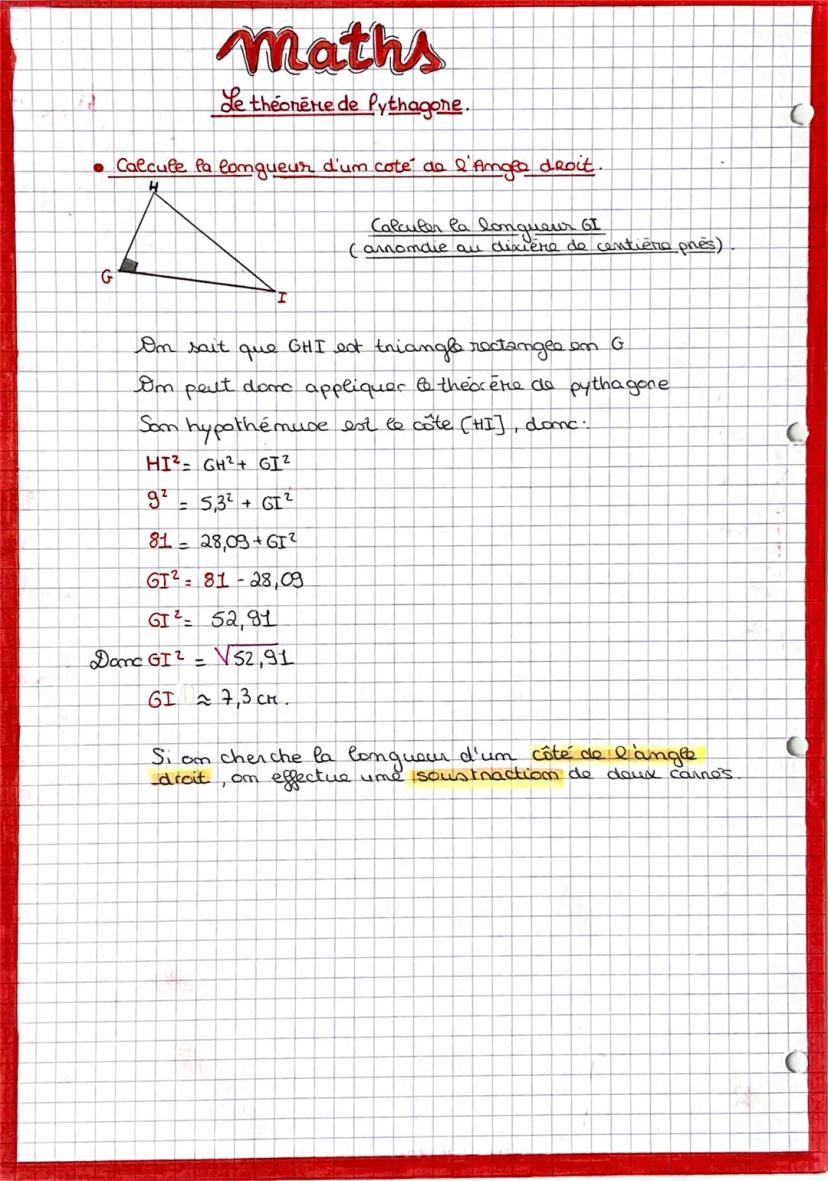 Maths
Le théorème de Pythagore.
• Calcule la longueur d'un coté de l'Angle droit.
H
G
I
Calculer la longueur GI
(arrondie au dixième de centième près).
On sait que GHI est triangle rectangle en G
On peut donc appliquer le théorème de pythagore
Son hypothémuse est le côte [HI], donc:
HI² = GH² + GI²
9² = 5,3² + GI²
81 = 28,09 + GI²
GI² = 81 - 28,09
GI² = 52,91
Donc GI² = √52,91
GI ≈ 7,3 cm.
Si on cherche la longueur d'un côté de l'angle
droit, on effectue une soustraction de deux carrés.